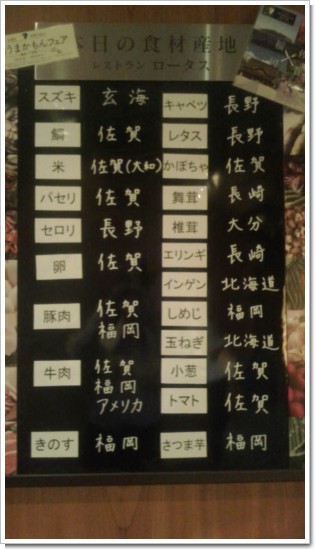 うまかもんフェア
本日の食材産地
レストラン ロータス
スズキ 玄海
鯛 佐賀
米 佐賀(大和)
パセリ 佐賀
セロリ 長野
卵 佐賀
豚肉 佐賀
福岡
牛肉 佐賀
福岡
アメリカ
きのす 福岡
キャベツ 長野
レタス 長野
かぼちゃ 佐賀
舞茸 長崎
椎茸 大分
エリンギ 長崎
インゲン 北海道
しめじ 福岡
玉ねぎ 北海道
小葱 佐賀
トマト 佐賀
さつま芋 福岡